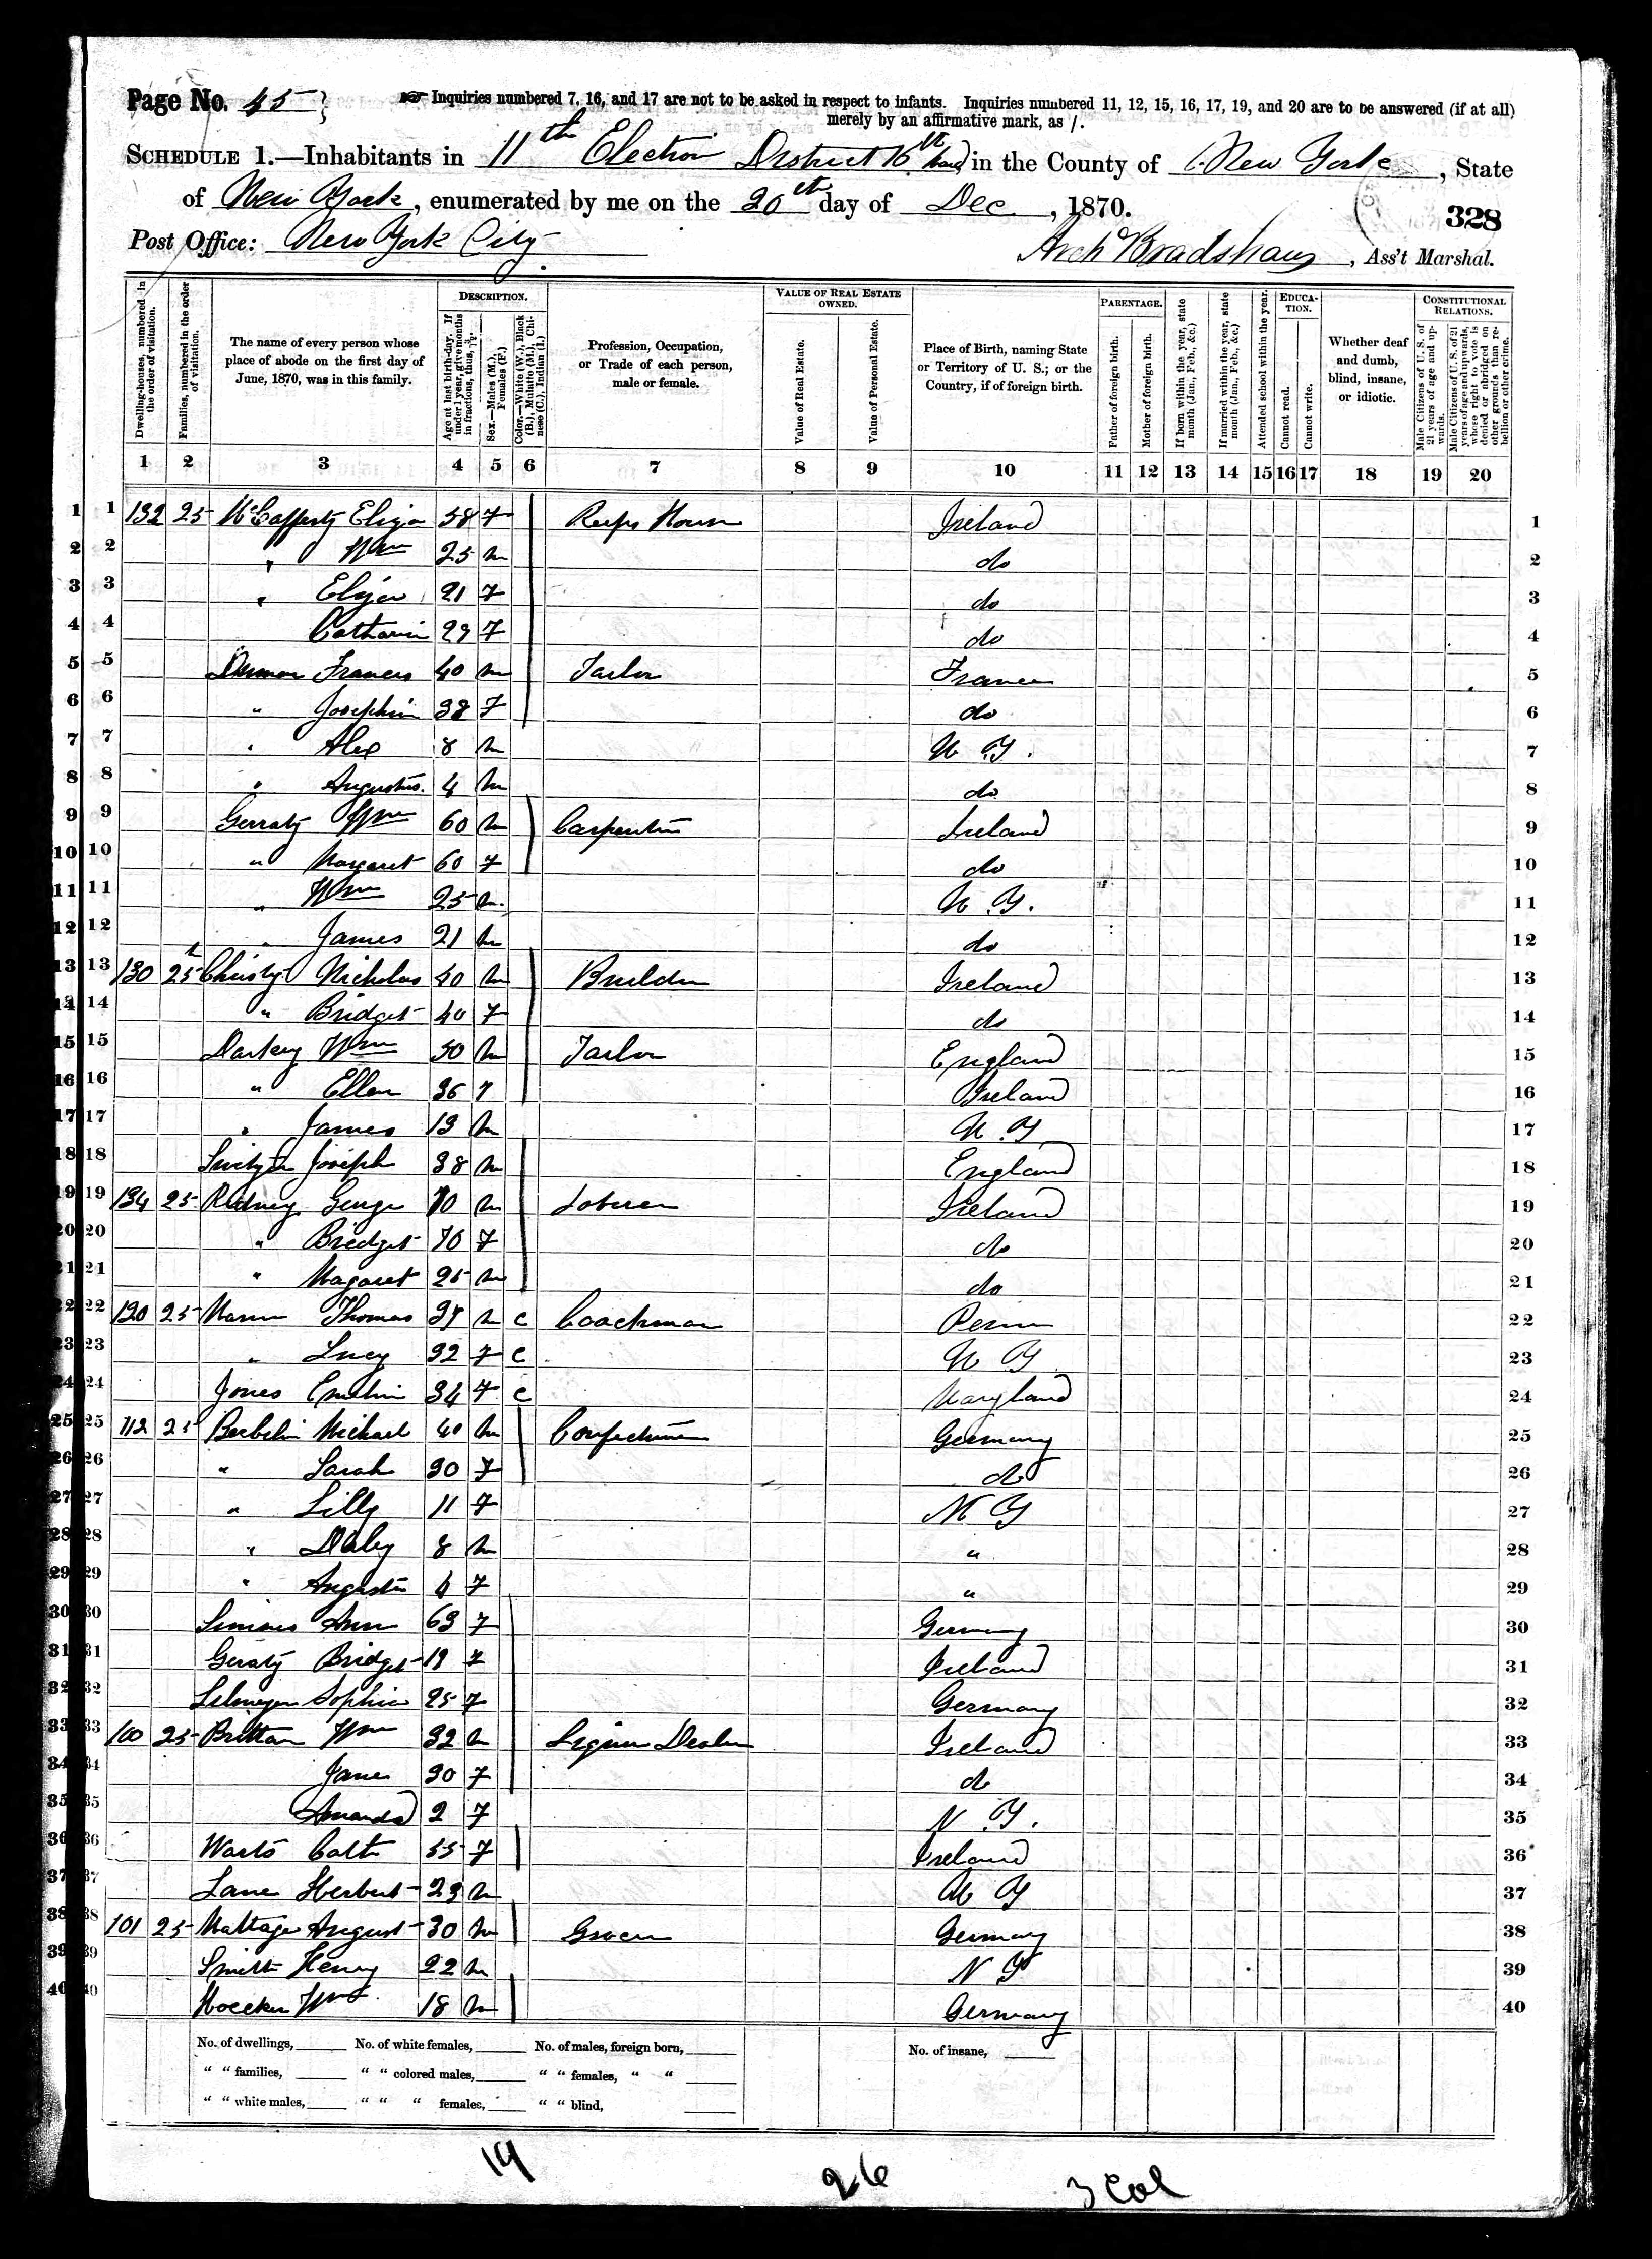 Page No. 45
☞ Inquiries numbered 7, 16, and 17 are not to be asked in respect to infants. Inquiries numbered 11, 12, 15, 16, 17, 19, and 20 are to be answered (if at all)
merely by an affirmative mark, as /.
SCHEDULE 1.—Inhabitants in 11th Election District 16th Ward in the County of New York, State
of New York, enumerated by me on the 20th day of Dec, 1870.
328
Post Office: New York City
Arch Bradshaw, Ass't Marshal.
Dwelling-houses, numbered in the order of visitation.
Families, numbered in the order of visitation.
The name of every person whose place of abode on the first day of June, 1870, was in this family.
DESCRIPTION.
Age at last birth-day. If under 1 year, give months in fractions, thus, 3/12.
Sex.—Males (M.), Females (F.)
Color.—White (W.), Black (B.), Mulatto (M.), Chinese (C.), Indian (I.)
Profession, Occupation, or Trade of each person, male or female.
VALUE OF REAL ESTATE OWNED.
Value of Real Estate.
Value of Personal Estate.
Place of Birth, naming State or Territory of U. S.; or the Country, if of foreign birth.
PARENTAGE.
Father of foreign birth.
Mother of foreign birth.
If born within the year, state month (Jan., Feb., &c.)
If married within the year, state month (Jan., Feb., &c.)
Attended school within the year.
EDUCATION.
Cannot read.
Cannot write.
Whether deaf and dumb, blind, insane, or idiotic.
CONSTITUTIONAL RELATIONS.
Male Citizens of U. S. of 21 years of age and upwards.
Male Citizens of U. S. of 21 years of age and upwards, whose right to vote is denied or abridged on other grounds than rebellion or other crime.
1 2 3 4 5 6 7 8 9 10 11 12 13 14 15 16 17 18 19 20
1 1 132 25 McCafferty Eliza 58 F Keeps House Ireland 1
2 2 " Wm 25 M do 2
3 3 " Eliza 21 F do 3
4 4 Catharin 29 F do 4
5 5 Francis 40 M Tailor France 5
6 6 " Josephin 38 F do 6
7 7 " Alex 8 M N Y. 7
8 8 " Augustus. 4 M do 8
9 9 Gerraty Wm 60 M Carpenter Ireland 9
10 10 " Margaret 60 F do 10
11 11 " Wm 25 M. N. Y. 11
12 12 " James 21 M do 12
13 13 130 25 Christy Nicholas 40 M Builder Ireland 13
14 14 " Bridget 40 F do 14
15 15 Wm 50 M Tailor England 15
16 16 " Ellen 36 F Ireland 16
17 17 " James 13 M N. Y 17
18 18 Joseph 38 M England 18
19 19 134 25 George 70 M Laborer Ireland 19
20 20 " Bredget 70 F do 20
21 21 " Magaret 25 M do 21
22 22 120 25 Mann Thomas M C Coachman Penn 22
23 23 " Lucy 32 F C N Y 23
24 24 Jones 34 F C Maryland 24
25 25 112 25 Michael 40 M Confectioner Germany 25
26 26 " Sarah 30 F do 26
27 27 " Lilly 11 F N Y 27
28 28 " 8 M " 28
29 29 " 4 F " 29
30 30 Ann 63 F Germany 30
31 31 Geraty Bridget 19 F Ireland 31
32 32 Sophia 25 F Germany 32
33 33 100 25 Brittan Wm 32 M Liquor Dealer Ireland 33
34 34 Jane 30 F do 34
35 35 Amanda 2 F N. Y. 35
36 36 Cath 55 F Ireland 36
37 37 Lane Herbert 23 M N Y 37
38 38 101 25 August 30 M Grocer Germany 38
39 39 Smith Henry 22 M N Y 39
40 40 Wm 18 M Germany 40
No. of dwellings, No. of white females, No. of males, foreign born, No. of insane,
" " families, " " colored males, " " females, " "
" " white males, " " " females, " " blind,
19 26 3 Col